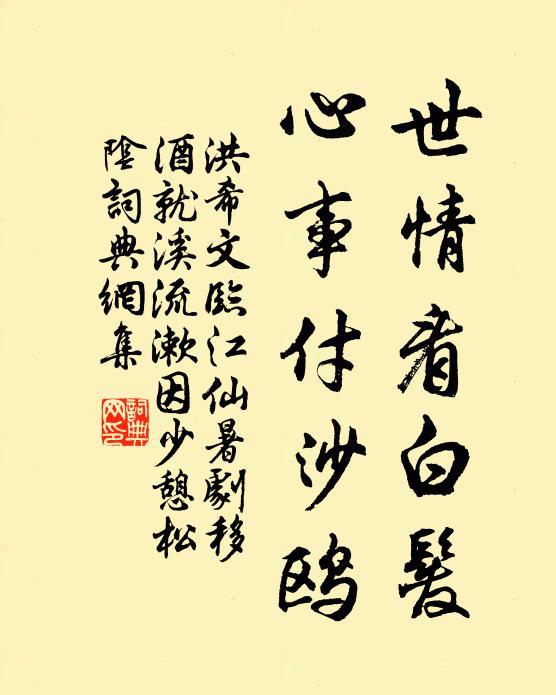 世情看白髮
心事付沙鸥
洪希文臨江仙暑劇移
酒就溪流漱因少憩松
陰詞典網集
詞典网印